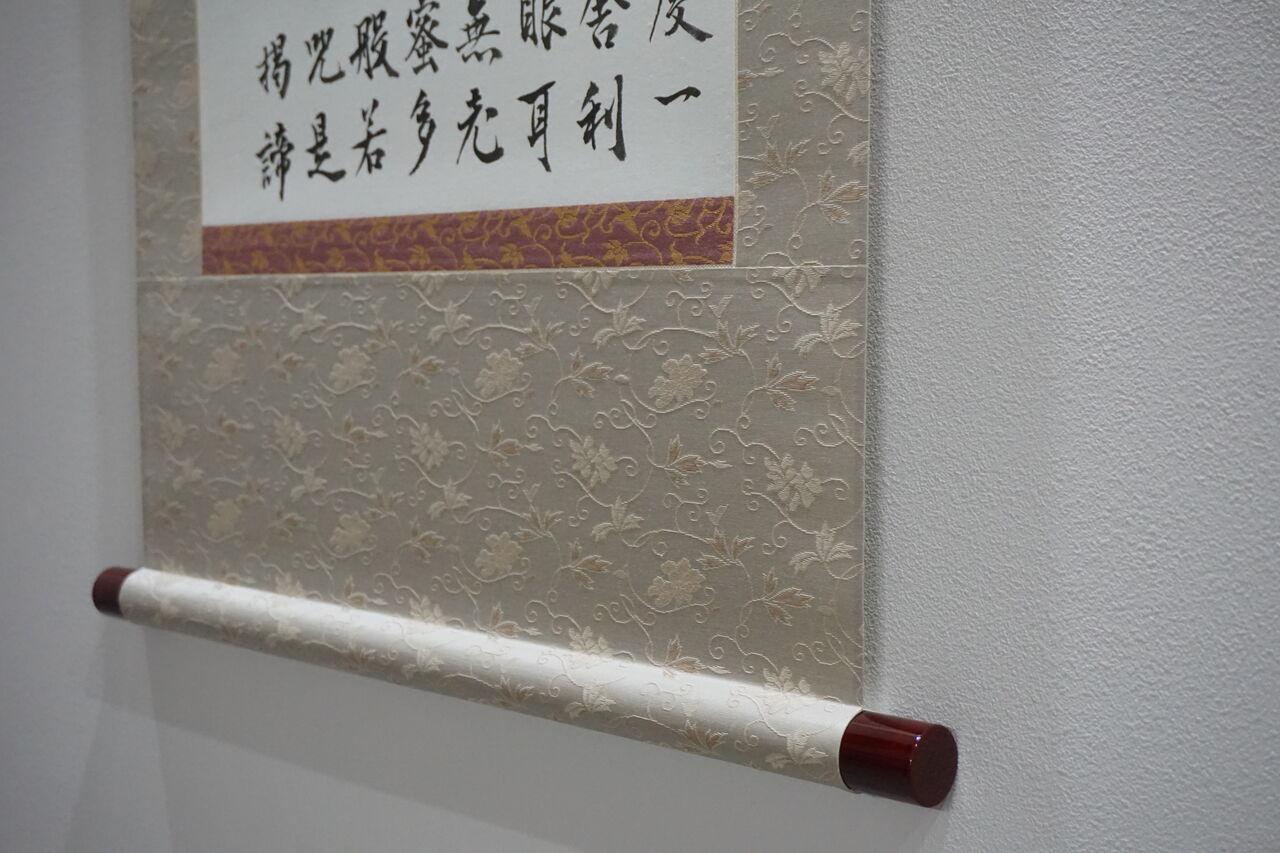 度一
舍利
眼耳
無老
蜜多
般若
咒是
揭諦